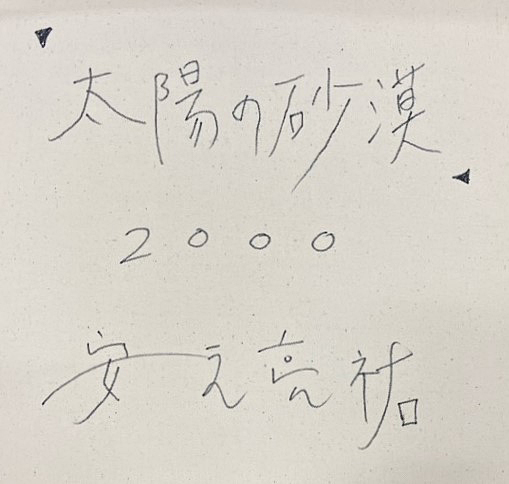 太陽の砂漠
2000
安元亮祐